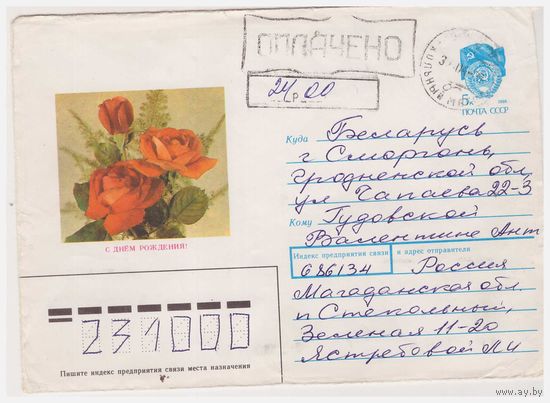 ОПЛАЧЕНО
24р00
5к
1988
ПОЧТА СССР
С ДНЁМ РОЖДЕНИЯ!
Куда Беларусь
г Сморгонь,
Гродненской обл,
ул Чапаева 22-3
Кому Гудовской
Валентине Ант
Индекс предприятия связи и адрес отправителя
686134 Россия
Магаданская обл.
п Стекольный,
Зеленая 11-20
Ястребовой Л И
231000
Пишите индекс предприятия связи места назначения
© www.ay.by